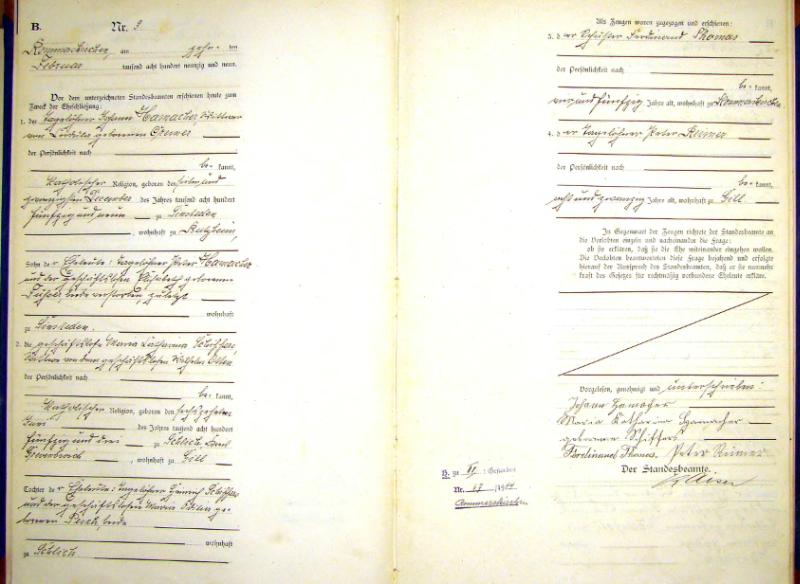 B. Nr. 3.
Rommerskirchen, am zehn- ten
Februar tausend acht hundert neunzig und neun.
Vor dem unterzeichneten Standesbeamten erschienen heute zum
Zweck der Eheschließung:
1. der Tagelöhner Johann Hamacher Wittwer
von geborenen
der Persönlichkeit nach
be- kannt,
katholischer Religion, geboren den sieben und
zwanzigsten Dezember des Jahres tausend acht hundert
fünfzig und neun zu Sinsteden
, wohnhaft zu Butzheim,
Sohn der Eheleute: Tagelöhner Peter Hamacher
und der geschäftslosen Elisabeth geborenen
beide verstorben, zuletzt
wohnhaft
zu Sinsteden.
2. die geschäftslose Maria Katharina Schiffer
Wittwe von dem geschäftslosen Wilhelm
der Persönlichkeit nach
be- kannt,
katholischer Religion, geboren den sechszehnten
Juni des Jahres tausend acht hundert
fünfzig und drei zu Schlich,
, wohnhaft zu Gill
Tochter der Eheleute: Tagelöhner Heinrich Schiffer
und der geschäftslosen Maria ge-
borenen beide
wohnhaft
zu Schlich
Als Zeugen waren zugezogen und erschienen:
3. der Schuster Ferdinand Thomas
der Persönlichkeit nach
be- kannt,
und fünfzig Jahre alt, wohnhaft zu Rommerskirchen
4. der Tagelöhner Peter Reimer
der Persönlichkeit nach
be- kannt,
acht und zwanzig Jahre alt, wohnhaft zu Gill
In Gegenwart der Zeugen richtete der Standesbeamte an
die Verlobten einzeln und nacheinander die Frage:
ob sie erklären, daß sie die Ehe miteinander eingehen wollen.
Die Verlobten beantworteten diese Frage bejahend und erfolgte
hierauf der Ausspruch des Standesbeamten, daß er sie nunmehr
kraft des Gesetzes für rechtmäßig verbundene Eheleute erkläre.
Vorgelesen, genehmigt und unterschrieben:
Johann Hamacher
Maria Katharina Hamacher
geborene Schiffer
Ferdinand Thomas. Peter Reimer
Der Standesbeamte.
B. zu : Gestorben
Nr. 17 /19
Rommerskirchen